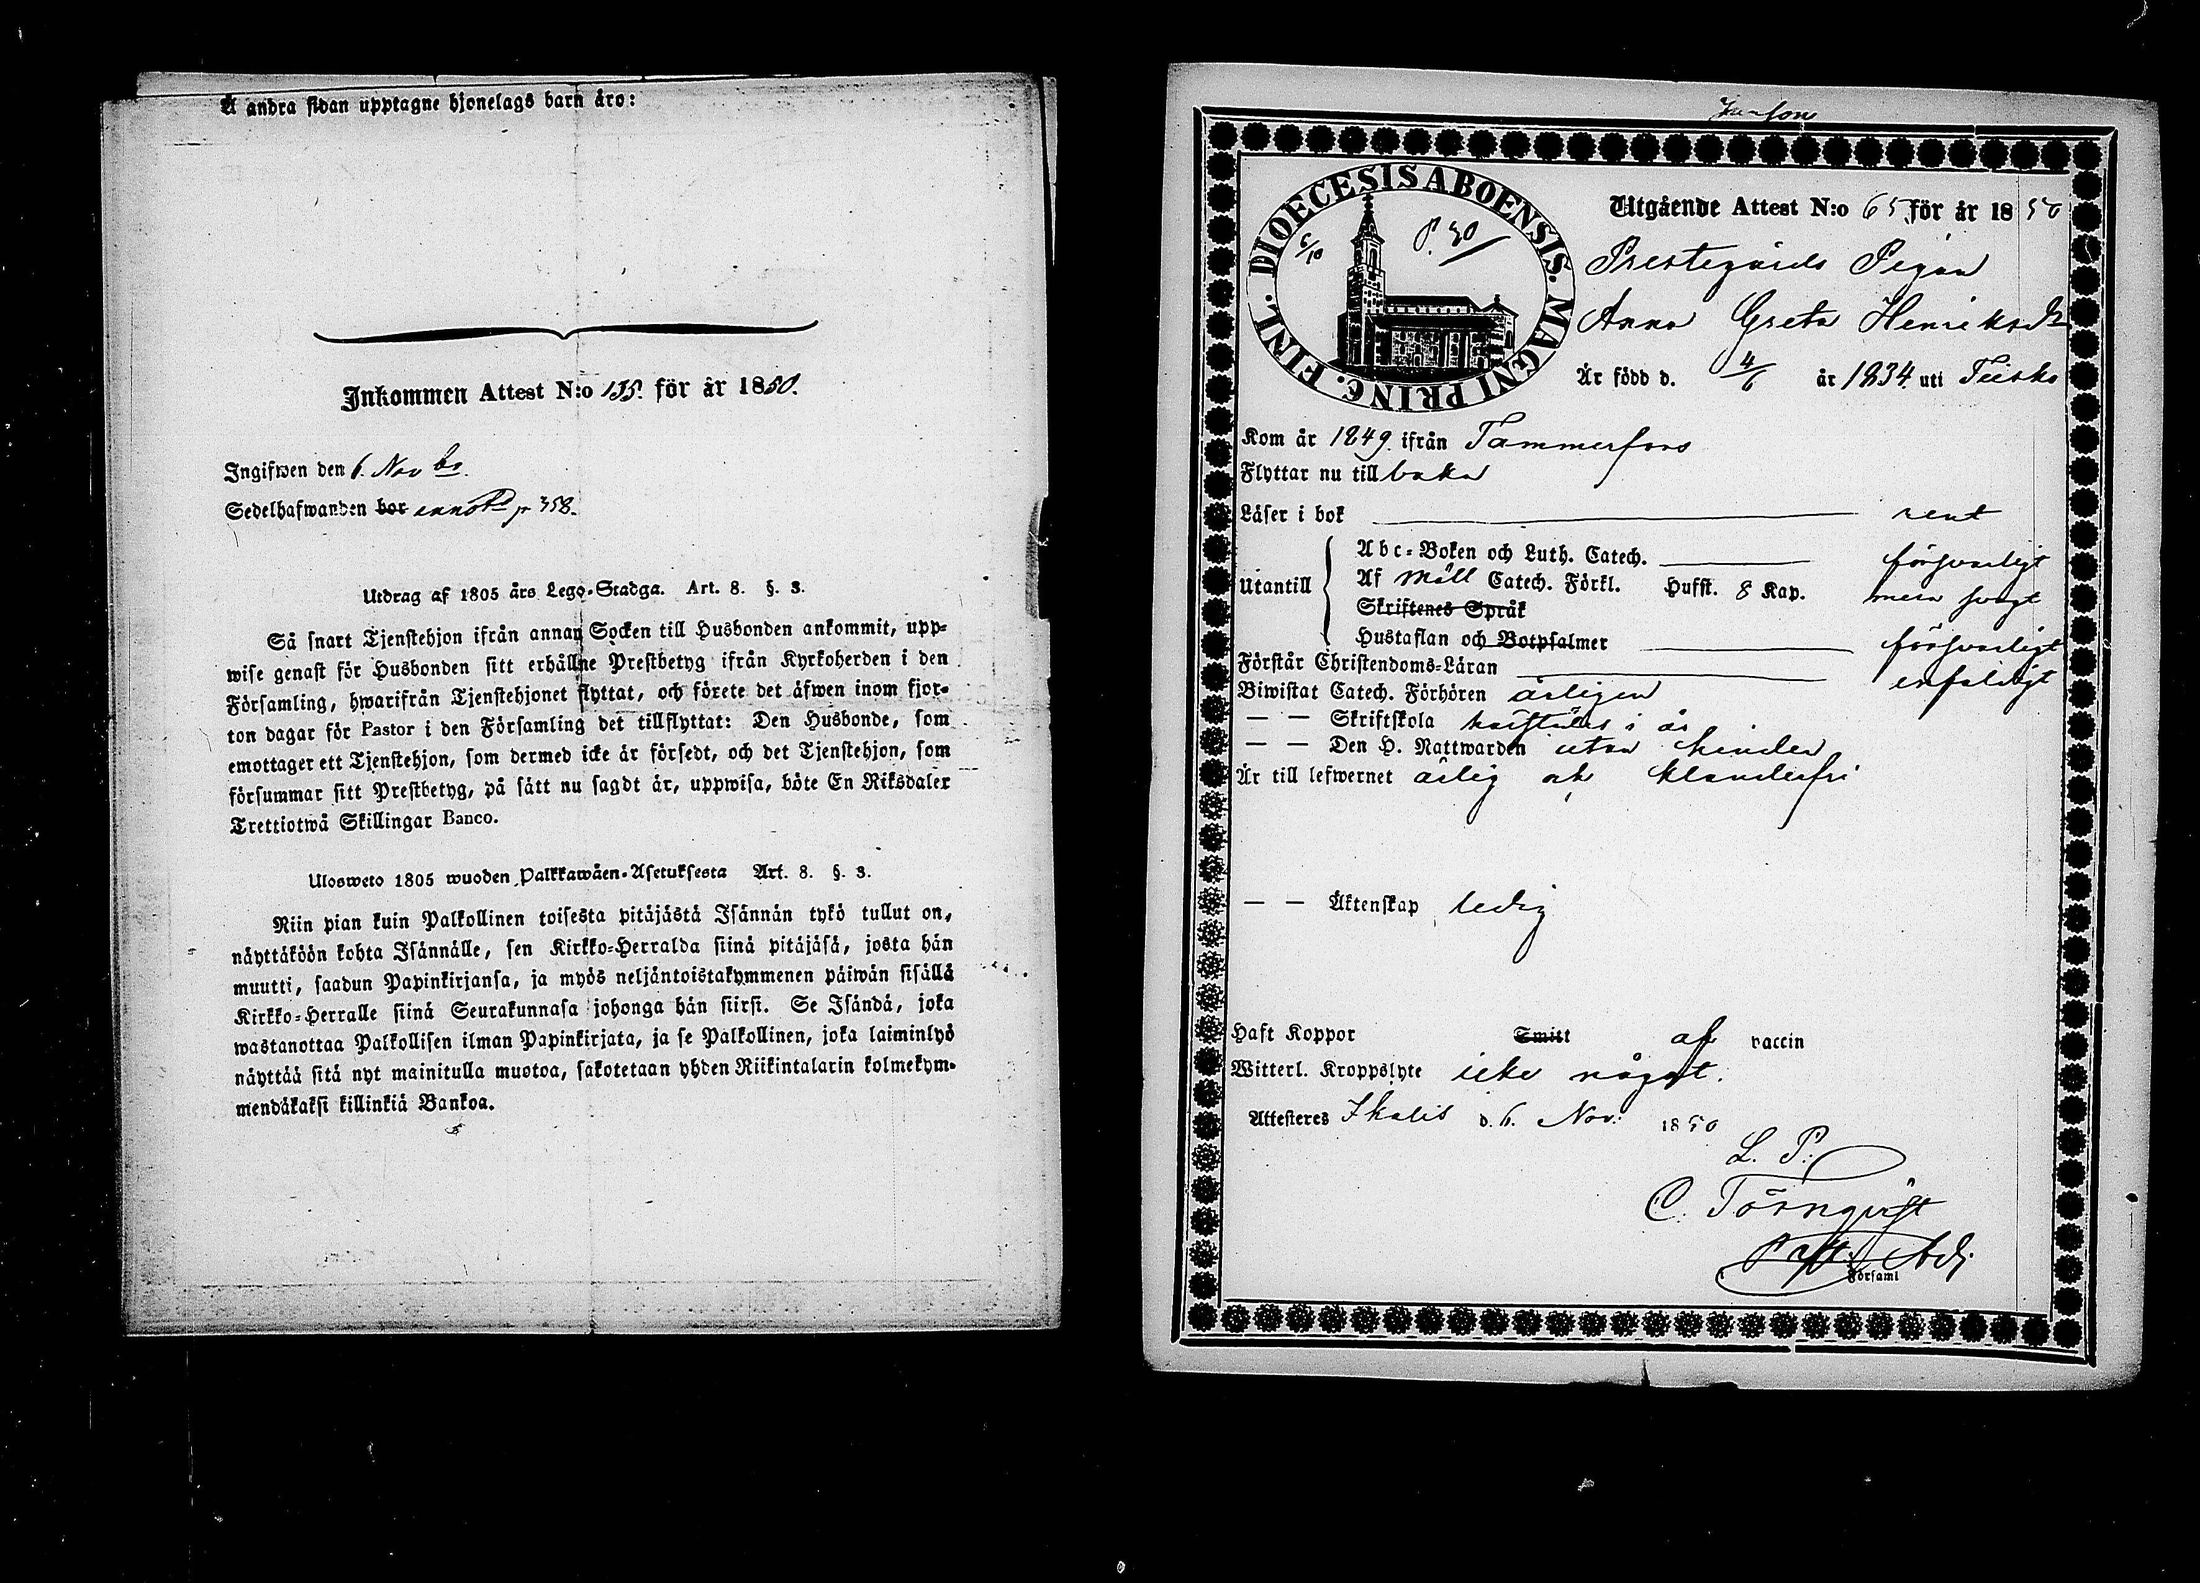 Å andra sidan upptagne hjonelags barn äro:
Inkommen Attest N:o 135. för år 1850.
Ingifwen den 6. Novbr.
Sedelhafwanden bor annot. p 358.
Utdrag af 1805 års Lego-Stadga. Art. 8. §. 3.
Så snart Tjenstehjon ifrån annan Socken till Husbonden ankommit, upp-
wise genast för Husbonden sitt erhållne Prestbetyg ifrån Kyrkoherden i den
Församling, hwarifrån Tjenstehjonet flyttat, och förete det äfwen inom fjor-
ton dagar för Pastor i den Församling det tillflyttat: Den Husbonde, som
emottager ett Tjenstehjon, som dermed icke är försedt, och det Tjenstehjon, som
försummar sitt Prestbetyg, på sätt nu sagdt är, uppwisa, böte En Riksdaler
Trettiotwå Skillingar Banco.
Ulosweto 1805 wuoden Palkkawäen-Asetuksesta Art. 8. §. 3.
Niin pian kuin Palkollinen toisesta pitäjästä Isännän tykö tullut on,
näyttäköön kohta Isännälle, sen Kirkko-Herralda siinä pitäjäsä, josta hän
muutti, saadun Papinkirjansa, ja myös neljäntoistakymmenen päiwän sisällä
Kirkko-Herralle siinä Seurakunnasa johonga hän siirsi. Se Isändä, joka
wastanottaa Palkollisen ilman Papinkirjata, ja se Palkollinen, joka laiminlyö
näyttää sitä nyt mainitulla muotoa, sakotetaan yhden Riikintalarin kolmekym-
mendäkaksi killinkiä Bankoa.
DIOECESIS ABOENSIS. MAGNI PRINC. FINL.
6/10 P. 30
Utgående Attest N:o 65 för år 1850
Prestegårds Pigan
Anna Greta Henriksdr
Är född d. 4/6 år 1834 uti Teisko
Kom år 1849 ifrån Tammerfors
Flyttar nu till baka
Läser i bok rent
Utantill
Abc-Boken och Luth. Catech. försvarligt
Af Möll Catech. Förkl. Hufst. 8 Kap. men svagt
Skriftenes Språk
Hustaflan och Botpsalmer försvarligt
Förstår Christendoms-Läran enfaldigt
Biwistat Catech. Förhören årligen
— — Skriftskola i år
— — Den H. Nattwarden utan hinder
Är till lefwernet ärlig och klanderfri
— — Äktenskap ledig
Haft Koppor Smitt af vaccin
Witterl. Kroppslyte icke något.
Attesteres Ikalis d. 6. Nov: 1850
L. P.
C. Törnqvist
Past. Adj.
Församl